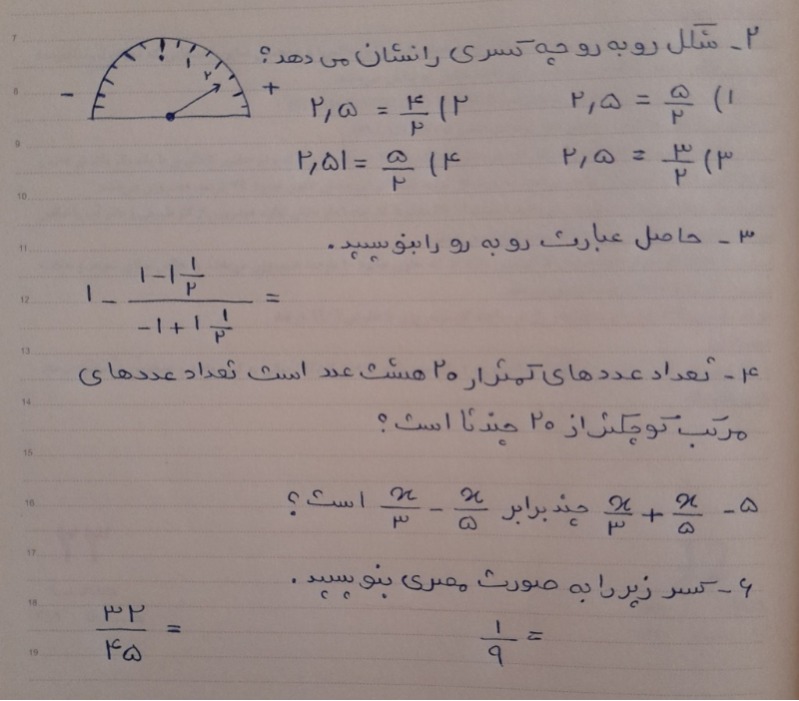 ۲- شکل روبه رو چه کسری را نشان می دهد؟
- ! ۱ ۲ +
۱) ۵/۲ = ۲,۵ ۲) ۴/۲ = ۲,۵
۳) ۳/۲ = ۲,۵ ۴) ۵/۲ = ۲,۵۱
۳- حاصل عبارت رو به رو را بنویسید.
۱ - (۱ - ۱ ۱/۲)/(-۱ + ۱ ۱/۲) =
۴- تعداد عددهای کمتر از ۲۰ هشت عدد است تعداد عددهای
مرکب کوچکتر از ۲۰ چندتا است؟
۵- x/۵ + x/۳ چند برابر x/۵ - x/۳ است؟
۶- کسر زیر را به صورت مصری بنویسید.
۱/۹ = ۳۲/۴۵ =
7
8
9
10
11
12
13
14
15
16
17
18
19